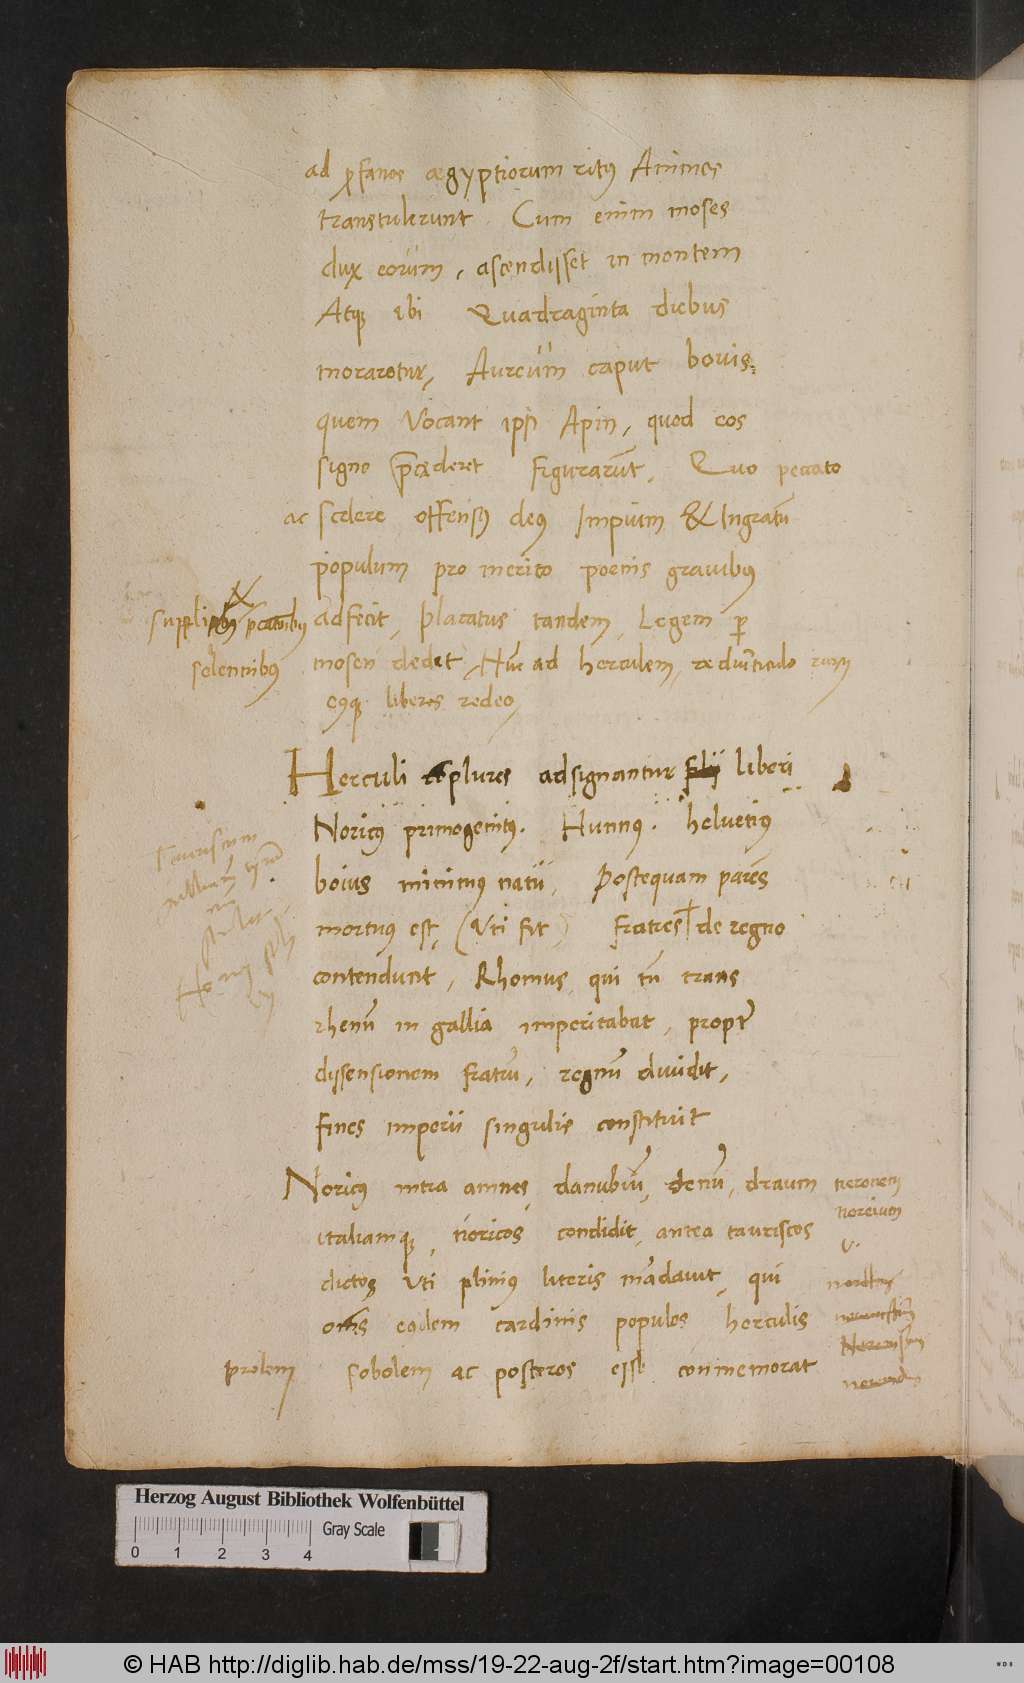 ad ꝓfanos ægyptiorum ritꝰ Animos
transtulerunt. Cum enim moses
dux eorum, ascendisset in montem
Atqꝫ ibi Quadraginta diebus
moraretur, Aureum caput bouis
quem Vocant ipsi Apin, quod eos
signo p̄cederet figurarūt, Quo peccato
ac scelere offensꝰ deꝰ Impium & Ingratū
populum pro merito poenis grauibꝰ
adfecit, placatus tandem, Legem ꝑ
solennibꝰ
mosen dedit Nūc ad herculem, e diuerticulo
eꝰqꝫ liberos redeo,
Herculi plures adsignantur filij liberi
Noricꝰ primogenitꝰ. Hunnꝰ. helvetiꝰ
boius minimꝰ natu, Postequam parēs
mortuꝰ est, (Vti fit) fratres de regno
contendunt, Rhomus, qui tū trans
rhenū in gallia imperitabat, propter
dissensionem fratrū, regnū diuidit,
fines imperii singulis constituit
Noricꝰ intra amnes, danubiū, oenū, draum
italiamqꝫ, noricos condidit, antea tauriscos
noreium
dictos Vti pliniꝰ literis mādauit, qui
oēs eiusdem cardinis populos herculis
prolem
sobolem ac posteros esse conmemorat
Herzog August Bibliothek Wolfenbüttel
Gray Scale
0 1 2 3 4
© HAB http://diglib.hab.de/mss/19-22-aug-2f/start.htm?image=00108